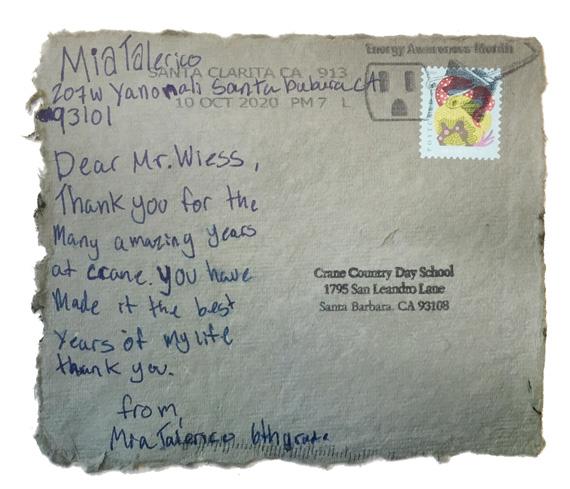 Mia Talerico
207 W Yanonali Santa Bubura CA
93101
Energy Awareness Month
SANTA CLARITA CA 913
10 OCT 2020 PM 7 L
POSTCARD
Dear Mr. Wiess,
Thank you for the
Many amazing years
at crane. you have
Made it the best
years of my life
thank you.
from,
Mia Talerico 6th grade
Crane Country Day School
1795 San Leandro Lane
Santa Barbara, CA 93108